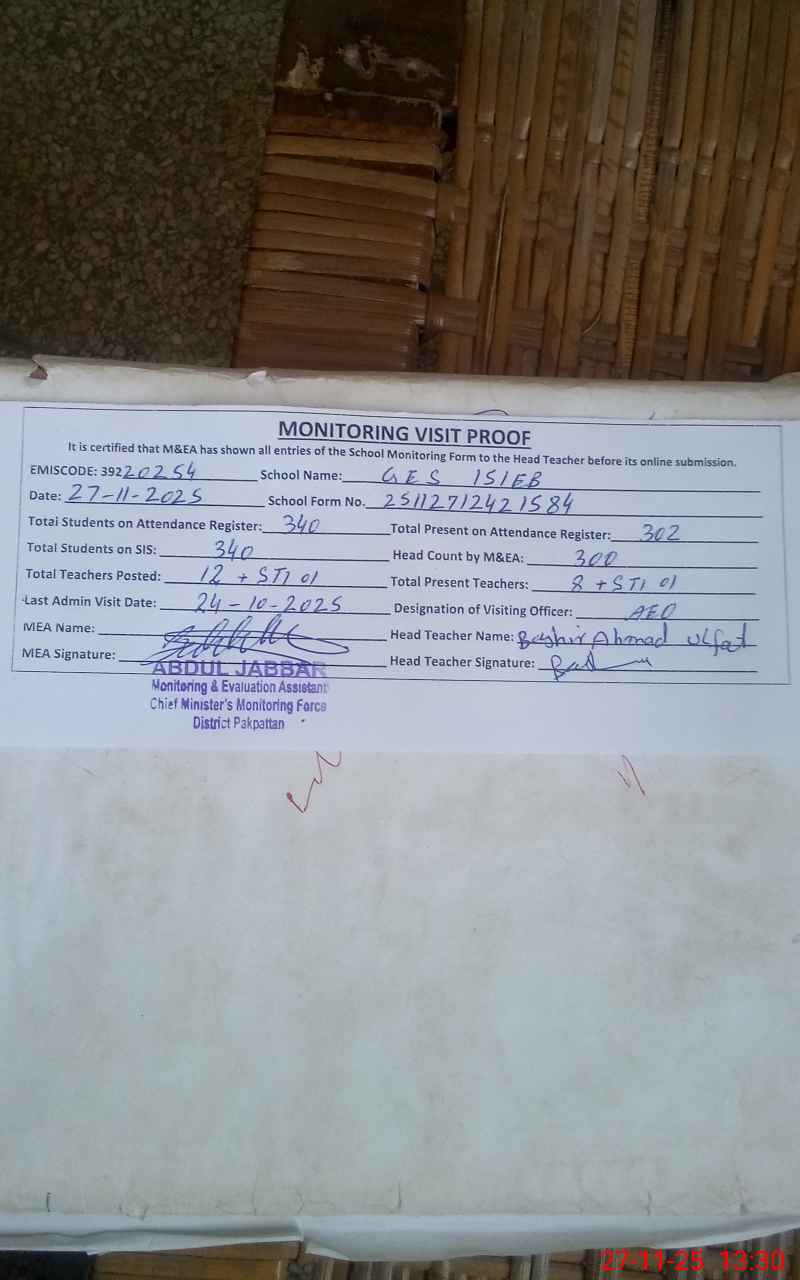 MONITORING VISIT PROOF
It is certified that M&EA has shown all entries of the School Monitoring Form to the Head Teacher before its online submission.
EMISCODE: 39220254 School Name: GES 151EB
Date: 27-11-2025 School Form No. 25112712421584
Total Students on Attendance Register: 340 Total Present on Attendance Register: 302
Total Students on SIS: 340 Head Count by M&EA: 300
Total Teachers Posted: 12 + STI 01 Total Present Teachers: 8 + STI 01
Last Admin Visit Date: 24-10-2025 Designation of Visiting Officer: AEO
MEA Name: Head Teacher Name: Bashir Ahmad Ulfat
MEA Signature: Head Teacher Signature:
ABDUL JABBAR
Monitoring & Evaluation Assistant
Chief Minister's Monitoring Force
District Pakpattan
27-11-25 13:30